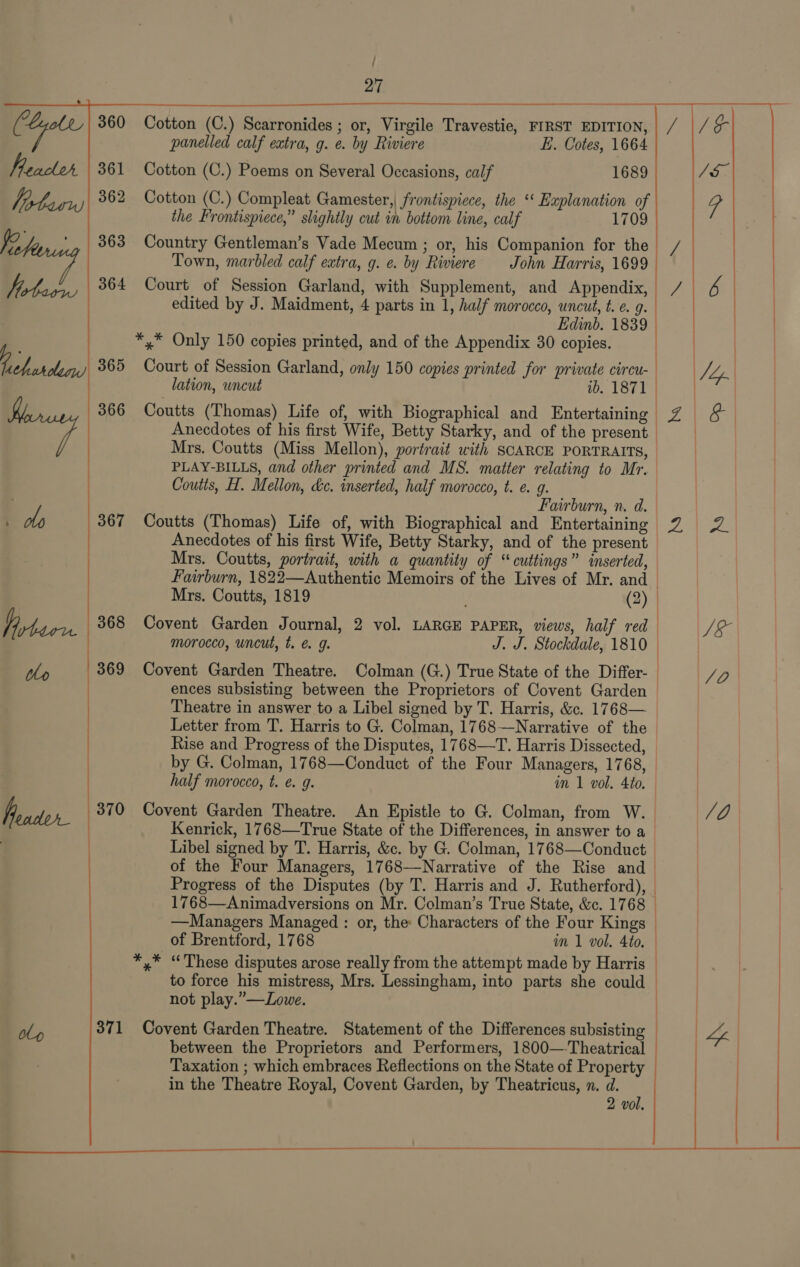 27
360 Cotton (C.) Scarronides ; or, Virgile Travestie, FIRST EDITION, / 18
panelled calf extra, g. e. by Riviere E. Cotes, 1664
Reader 361 Cotton (C.) Poems on Several Occasions, calf 1689 15
Hobson 362 Cotton (C.) Compleat Gamester, frontispiece, the “ Explanation of 9
the Frontispiece,” slightly cut in bottom line, calf 1709
363 Country Gentleman’s Vade Mecum ; or, his Companion for the /
Town, marbled calf extra, g. e. by Riviere John Harris, 1699
Hobson 364 Court of Session Garland, with Supplement, and Appendix, / 6
edited by J. Maidment, 4 parts in 1, half morocco, uncut, t. e. g.
Edinb. 1839
*** Only 150 copies printed, and of the Appendix 30 copies.
Richardson 365 Court of Session Garland, only 150 copies printed for private circu- 14
lation, uncut ib. 1871
Harvey 366 Coutts (Thomas) Life of, with Biographical and Entertaining 2 8
Anecdotes of his first Wife, Betty Starky, and of the present
Mrs. Coutts (Miss Mellon), portrait with SCARCE PORTRAITS,
PLAY-BILLS, and other printed and MS. matter relating to Mr.
Coutts, H. Mellon, &c. inserted, half morocco, t. e. g.
Fairburn, n. d.
do 367 Coutts (Thomas) Life of, with Biographical and Entertaining 2 2
Anecdotes of his first Wife, Betty Starky, and of the present
Mrs. Coutts, portrait, with a quantity of “cuttings” inserted,
Fairburn, 1822—Authentic Memoirs of the Lives of Mr. and
Mrs. Coutts, 1819 (2)
Hobson 368 Covent Garden Journal, 2 vol. LARGE PAPER, views, half red 18
morocco, uncut, t. e. g. J. J. Stockdale, 1810
do 369 Covent Garden Theatre. Colman (G.) True State of the Differ- 10
ences subsisting between the Proprietors of Covent Garden
Theatre in answer to a Libel signed by T. Harris, &c. 1768—
Letter from T. Harris to G. Colman, 1768—Narrative of the
Rise and Progress of the Disputes, 1768—T. Harris Dissected,
by G. Colman, 1768—Conduct of the Four Managers, 1768,
half morocco, t. e. g. in 1 vol. 4to.
Reader 370 Covent Garden Theatre. An Epistle to G. Colman, from W. 10
Kenrick, 1768—True State of the Differences, in answer to a
Libel signed by T. Harris, &c. by G. Colman, 1768—Conduct
of the Four Managers, 1768—Narrative of the Rise and
Progress of the Disputes (by T. Harris and J. Rutherford),
1768—Animadversions on Mr. Colman’s True State, &c. 1768
—Managers Managed : or, the Characters of the Four Kings
of Brentford, 1768 in 1 vol. 4to.
*** “These disputes arose really from the attempt made by Harris
to force his mistress, Mrs. Lessingham, into parts she could
not play.”—Lowe.
do 371 Covent Garden Theatre. Statement of the Differences subsisting 4
between the Proprietors and Performers, 1800—Theatrical
Taxation ; which embraces Reflections on the State of Property
in the Theatre Royal, Covent Garden, by Theatricus, n. d.
2 vol.